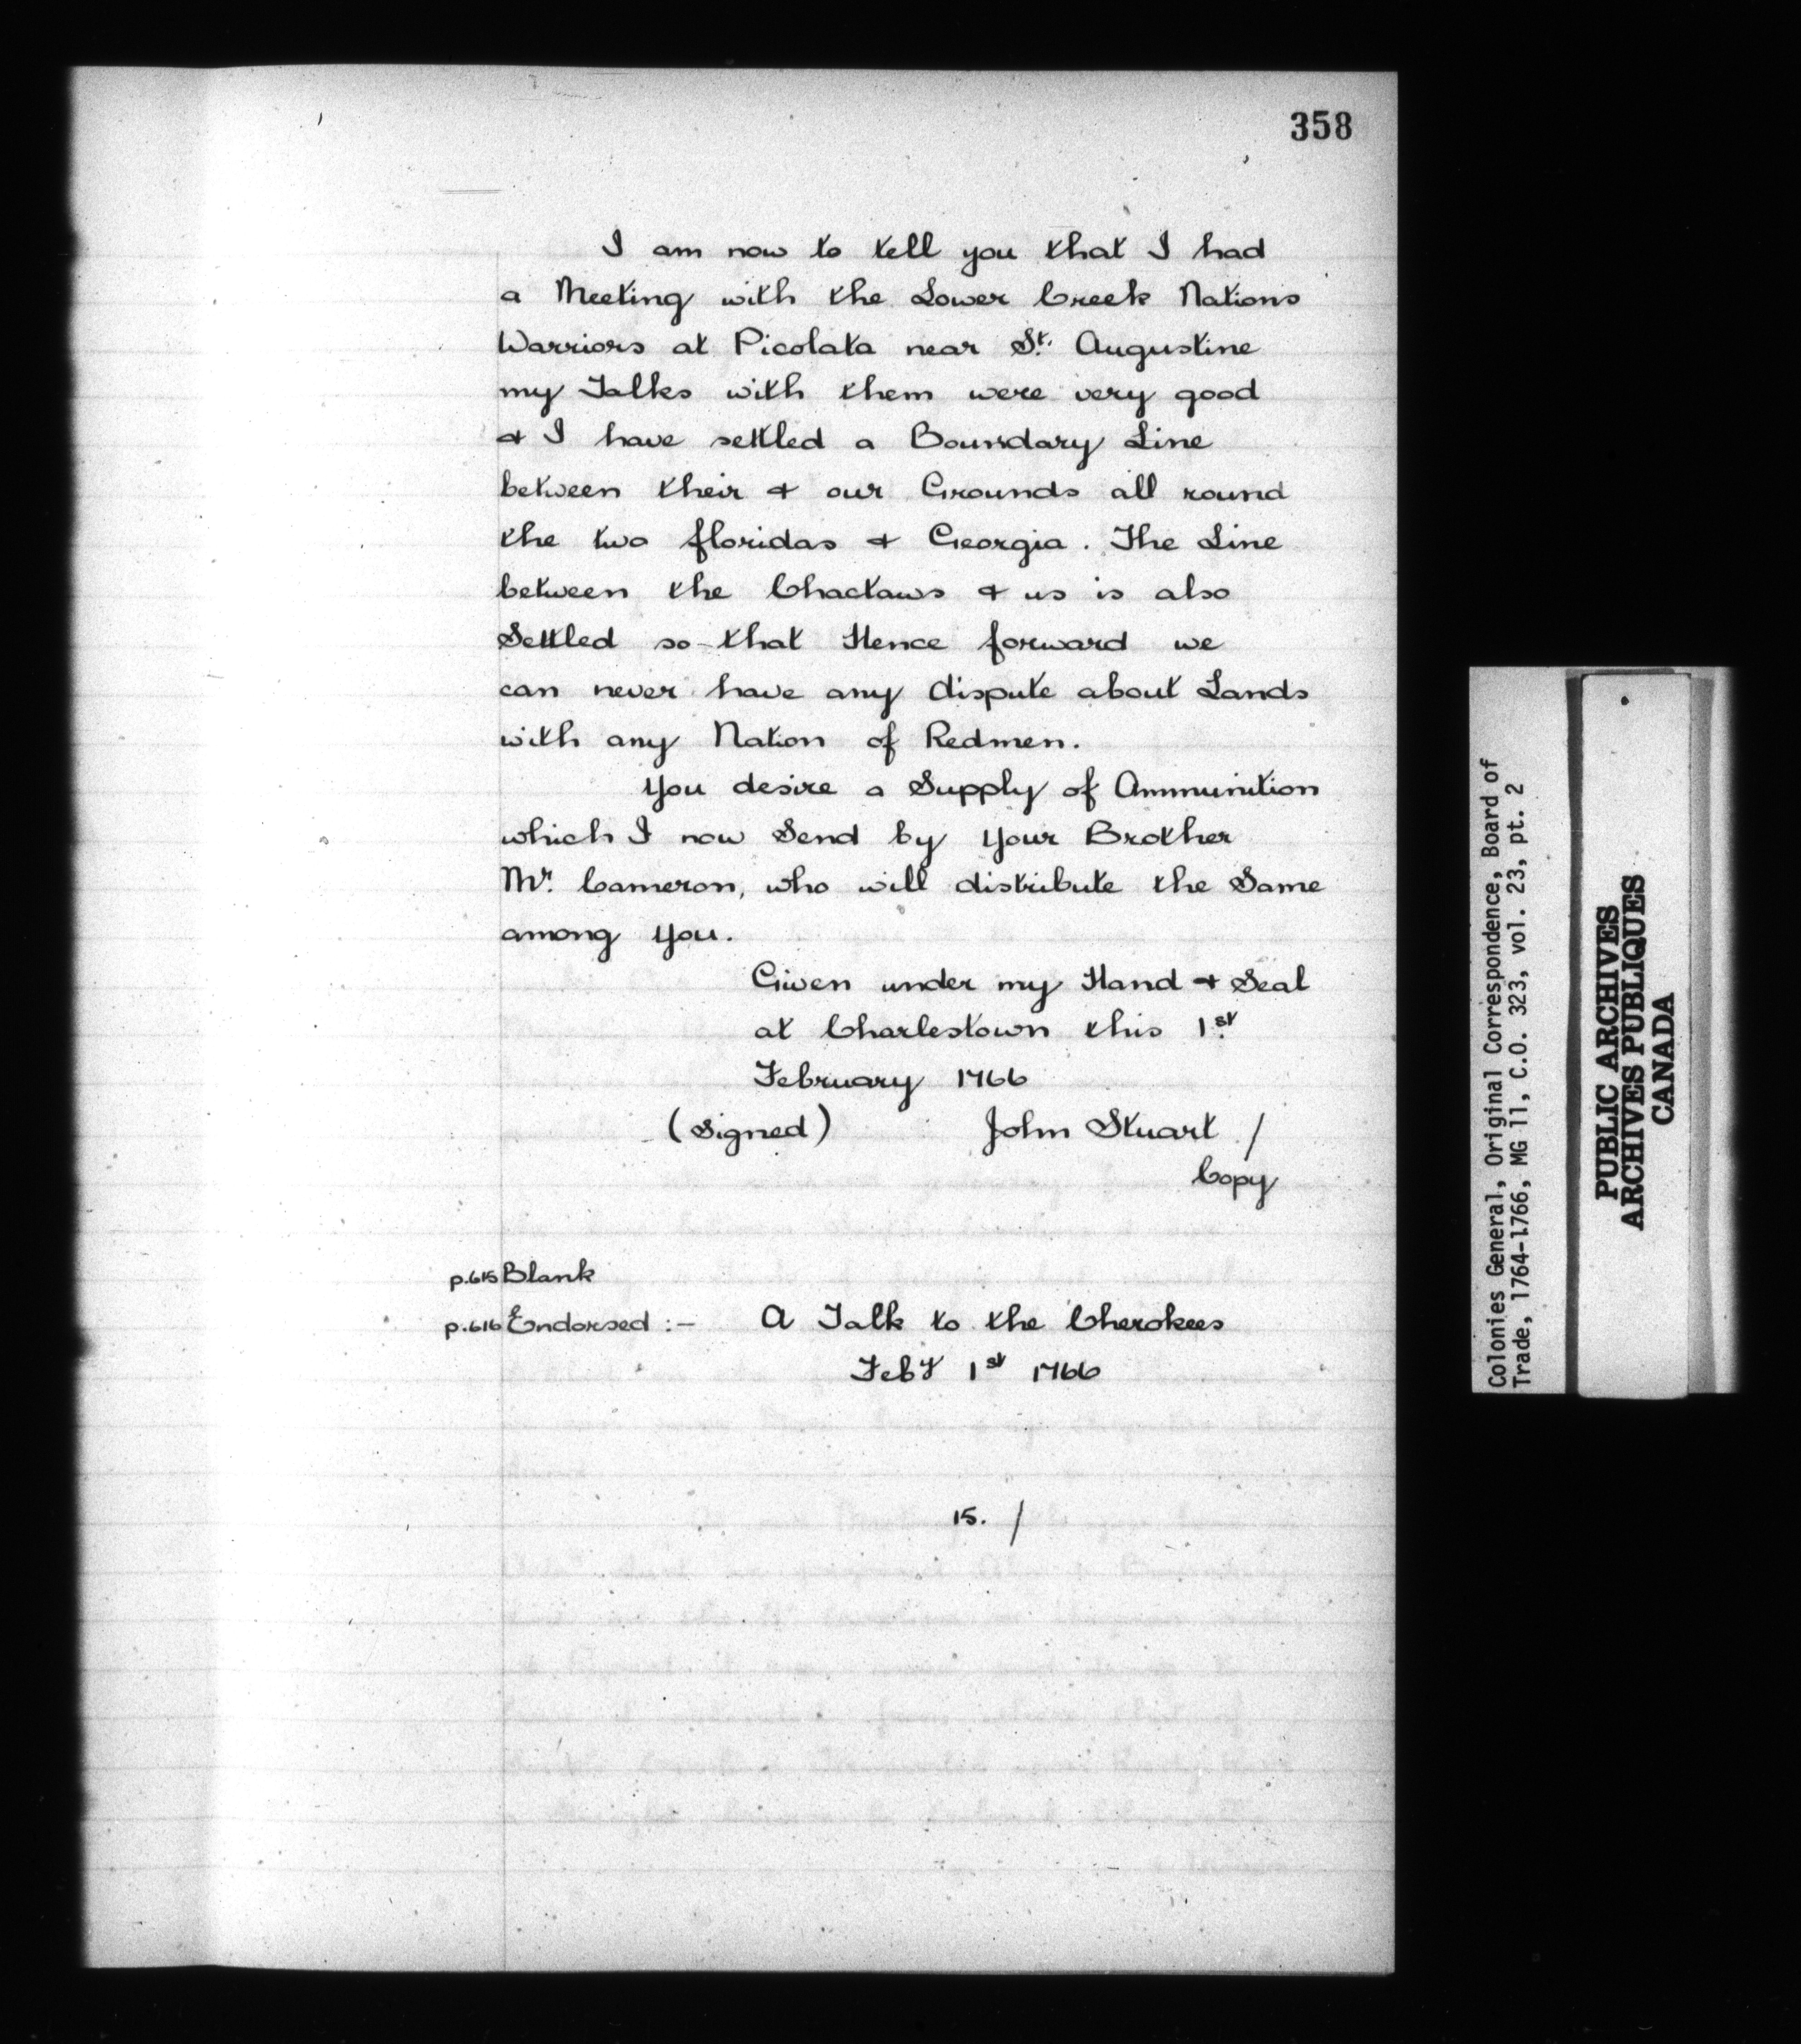 358
I am now to tell you that I had
a Meeting with the Lower Creek Nations
Warriors at Picolata near St. Augustine
my Talks with them were very good
& I have settled a Boundary Line
between their & our Grounds all round
the two floridas & Georgia. The Line
between the Chactaws & us is also
Settled so that Hence forward we
can never have any dispute about Lands
with any Nation of Redmen.
You desire a Supply of Ammunition
which I now Send by your Brother
Mr. Cameron, who will distribute the Same
among you.
Given under my Hand & Seal
at Charlestown this 1st
February 1766
(Signed) John Stuart /
Copy
p.615 Blank
p.616 Endorsed :- A Talk to the Cherokees
Feby 1st 1766
15. /
Colonies General, Original Correspondence, Board of
Trade, 1764-1766, MG 11, C.O. 323, vol. 23, pt. 2
PUBLIC ARCHIVES
ARCHIVES PUBLIQUES
CANADA